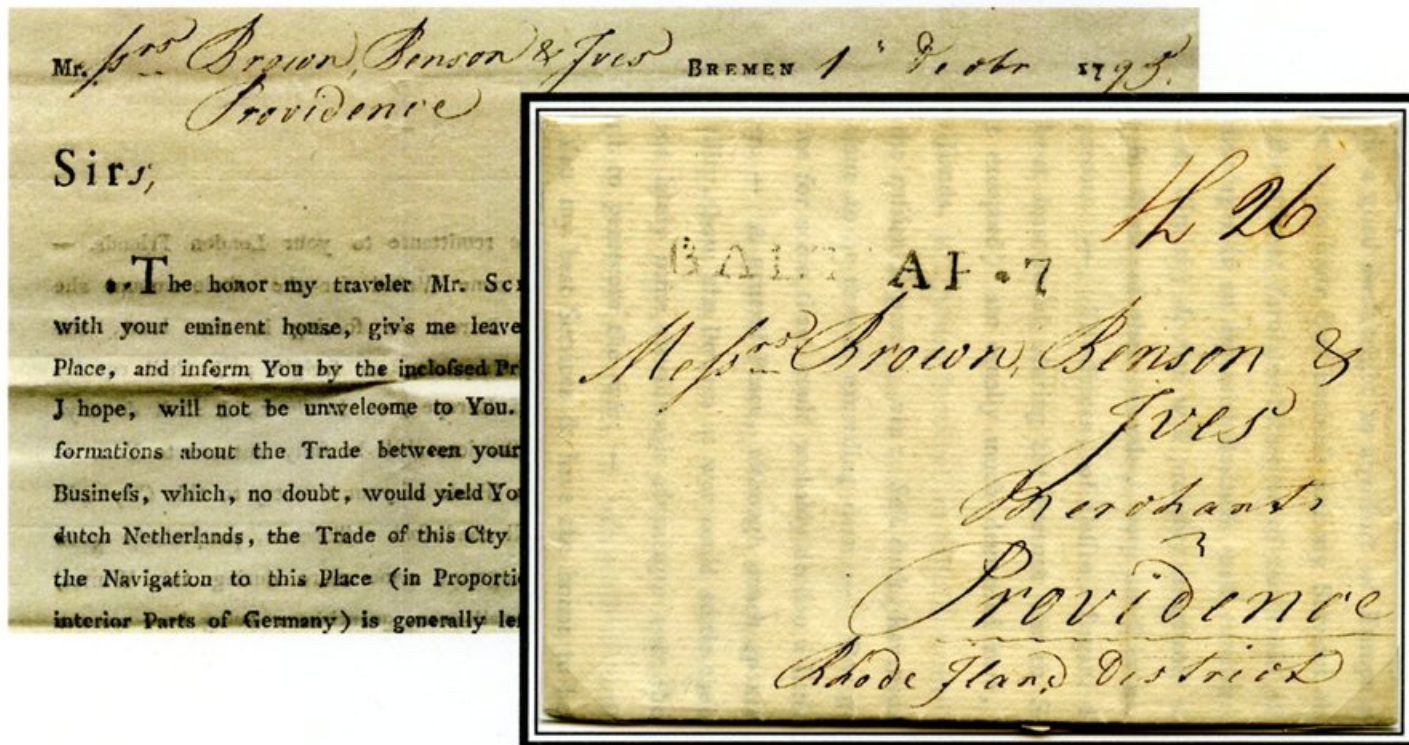 Mr. ssrs Brown, Benson & Ives BREMEN 1 Decbr 1795.
Providence
Sirs,
The honor my traveler Mr. Scr
with your eminent house, giv's me leave
Place, and inform You by the inclosed Pr
J hope, will not be unwelcome to You.
formations about the Trade between your
Business, which, no doubt, would yield Yo
dutch Netherlands, the Trade of this City
the Navigation to this Place (in Proporti
interior Parts of Germany) is generally le
26
BALT AP 7
Messrs Brown, Benson &
Ives
Merchants
Providence
Rhode Iland District